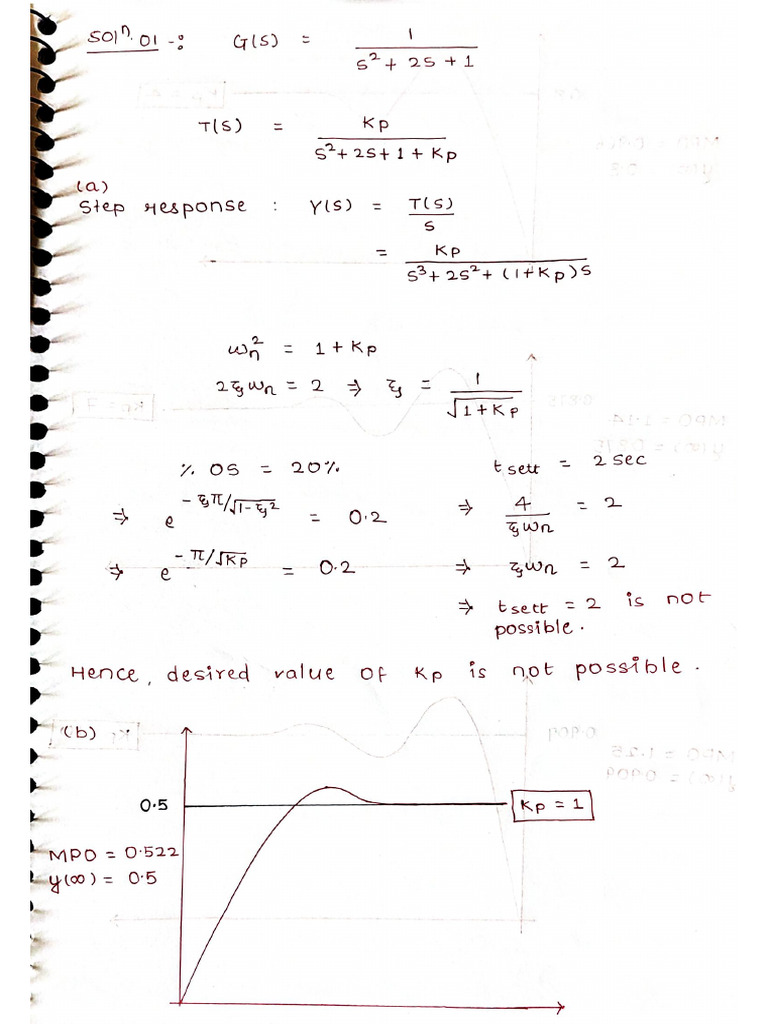 Sol^n. 01 -: G(s) = 1 / (s² + 2s + 1)
T(s) = Kp / (s² + 2s + 1 + Kp)
(a)
Step response : Y(s) = T(s) / s
= Kp / (s³ + 2s² + (1 + Kp)s)
ωn² = 1 + Kp
2ξωn = 2 ⇒ ξ = 1 / √(1 + Kp)
% OS = 20% t sett = 2 sec
⇒ e^(-ξπ/√(1-ξ²)) = 0.2 ⇒ 4 / (ξωn) = 2
⇒ e^(-π/√Kp) = 0.2 ⇒ ξωn = 2
⇒ t sett = 2 is not
possible.
Hence, desired value of Kp is not possible.
(b)
0.5
Kp = 1
MPO = 0.522
y(∞) = 0.5